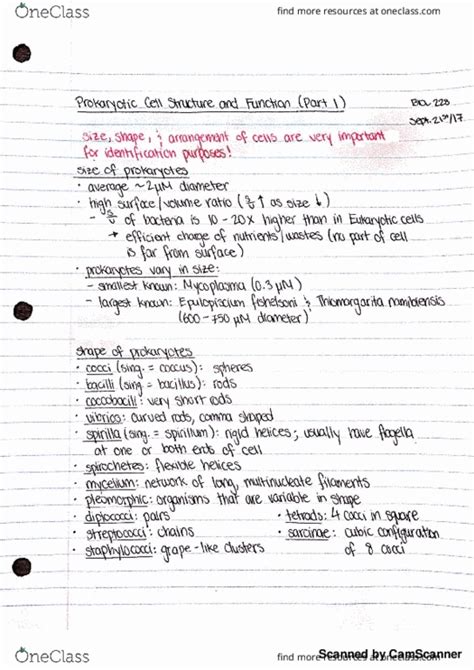 OneClass
find more resources at oneclass.com
Prokaryotic Cell Structure and Function (Part 1)
BIOL 223
Sept. 21st/17
size, shape, & arrangement of cells are very important
for identification purposes!
size of prokaryotes
• average ~2μM diameter
• high surface/volume ratio (S/V ↑ as size ↓)
- S/V of bacteria is 10-20x higher than in Eukaryotic cells
→ efficient change of nutrients/wastes (no part of cell
is far from surface)
• prokaryotes vary in size:
- smallest known: Mycoplasma (0.3 μM)
- largest known: Epulopiscium fishelsoni & Thiomargarita namibiensis
(600-750 μM diameter)
shape of prokaryotes
• cocci (sing. = coccus): spheres
• bacilli (sing = bacillus): rods
• coccobacilli: very short rods
• vibrios: curved rods, comma shaped
• spirilla (sing. = spirillum): rigid helices; usually have flagella
at one or both ends of cell
• spirochetes: flexible helices
• mycelium: network of long, multinucleate filaments
• pleomorphic: organisms that are variable in shape
• diplococci: pairs
• tetrads: 4 cocci in square
• streptococci: chains
• sarcinae: cubic configuration
of 8 cocci
• staphylococci: grape-like clusters
OneClass
find more resources at oneclass.com
Scanned by CamScanner